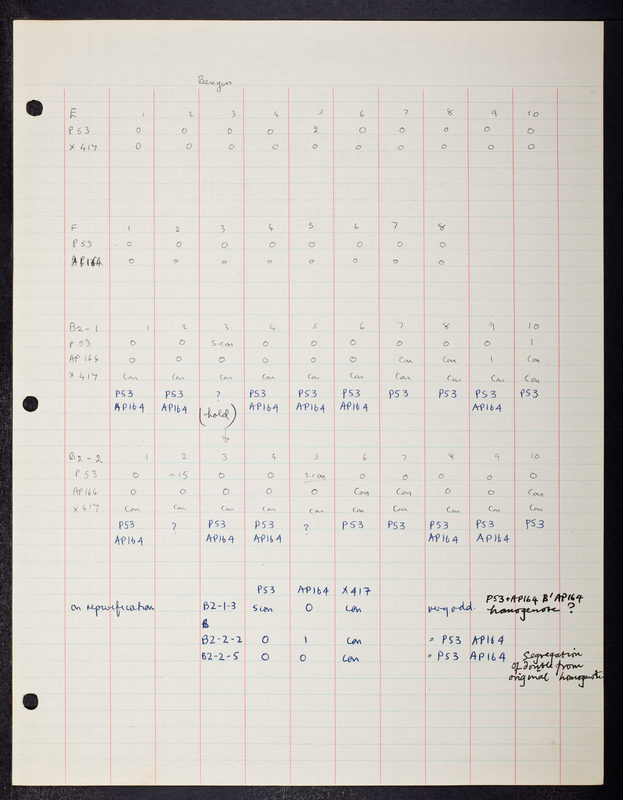 E 1 2 3 4 5 6 7 8 9 10
P53 0 0 0 0 2 0 0 0 0 0
X417 0 0 0 0 0 0 0 0 0 0
F 1 2 3 4 5 6 7 8
P53 0 0 0 0 0 0 0 0
AP164 0 0 0 0 0 0 0 0
B2-1 1 2 3 4 5 6 7 8 9 10
P53 0 0 s.con 0 0 0 0 0 0 1
AP164 0 0 0 0 0 0 Con Con 1 Con
X417 Con Con Con Con Con Con Con Con Con Con
P53 P53 ? P53 P53 P53 P53 P53 P53 P53
AP164 AP164 (hold) AP164 AP164 AP164 AP164
B2-2 1 2 3 4 5 6 7 8 9 10
P53 0 ~15 0 0 s.con 0 0 0 0 0
AP164 0 0 0 0 0 Con Con 0 0 Con
X417 Con Con Con Con Con Con Con Con Con Con
P53 ? P53 P53 ? P53 P53 P53 P53 P53
AP164 AP164 AP164 AP164 AP164
P53 AP164 X417
on repurification B2-1-3 scon 0 con very odd. P53+AP164 B' AP164
homogenote ?
B2-2-2 0 1 con = P53 AP164
B2-2-5 0 0 con = P53 AP164 Segregation
of double from
original homogenote